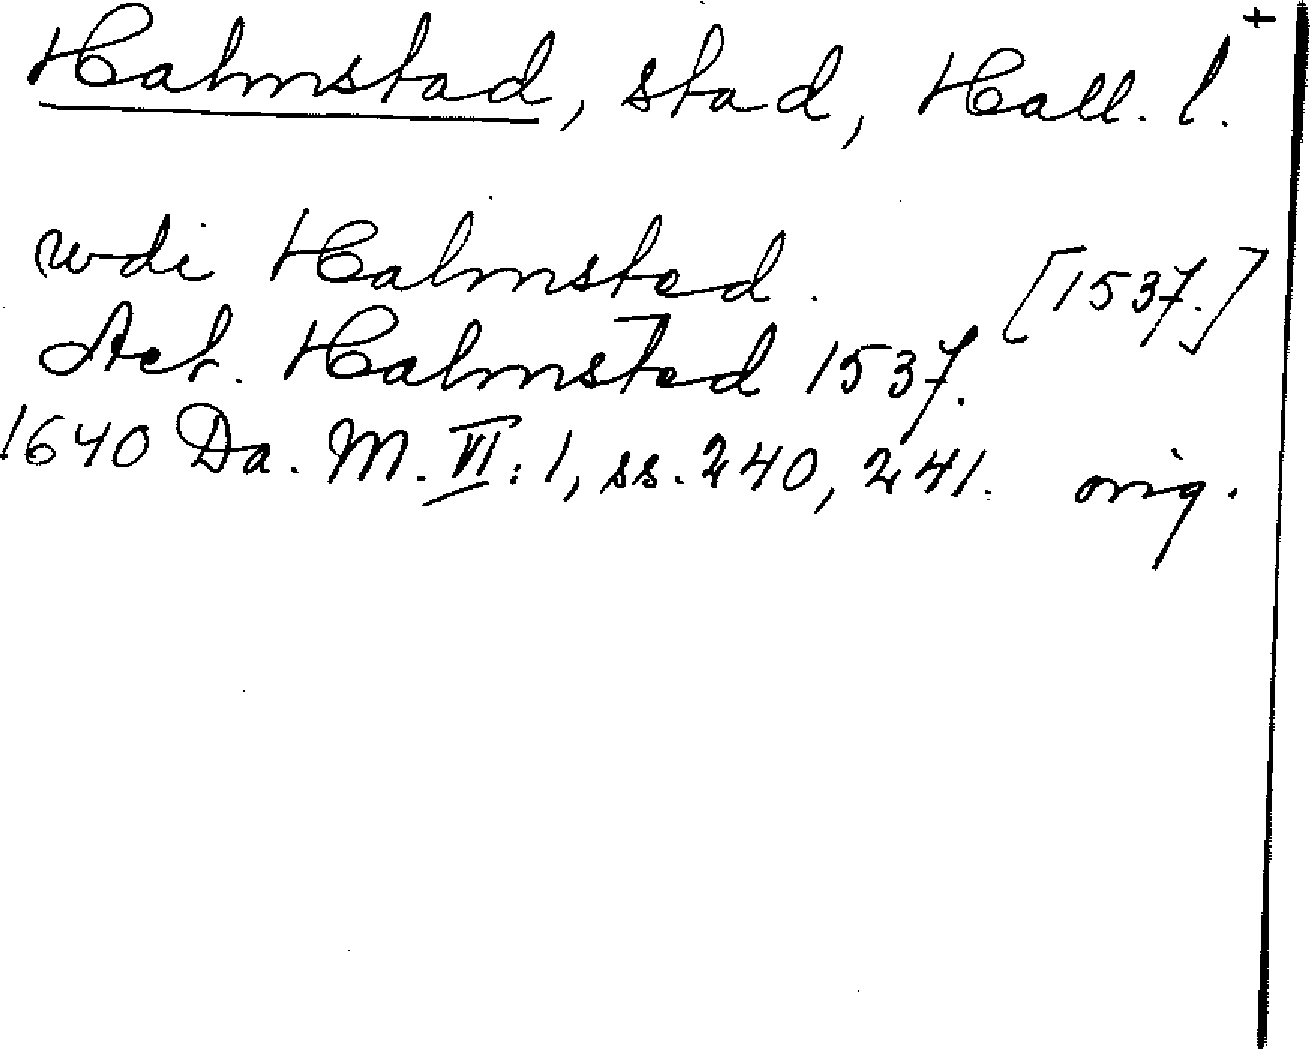 Halmstad, stad, Hall. l. +
wdi Halmsted. [1537.]
Act. Halmsted 1537.
1640 Da. M. VI: 1, ss. 240, 241. orig.